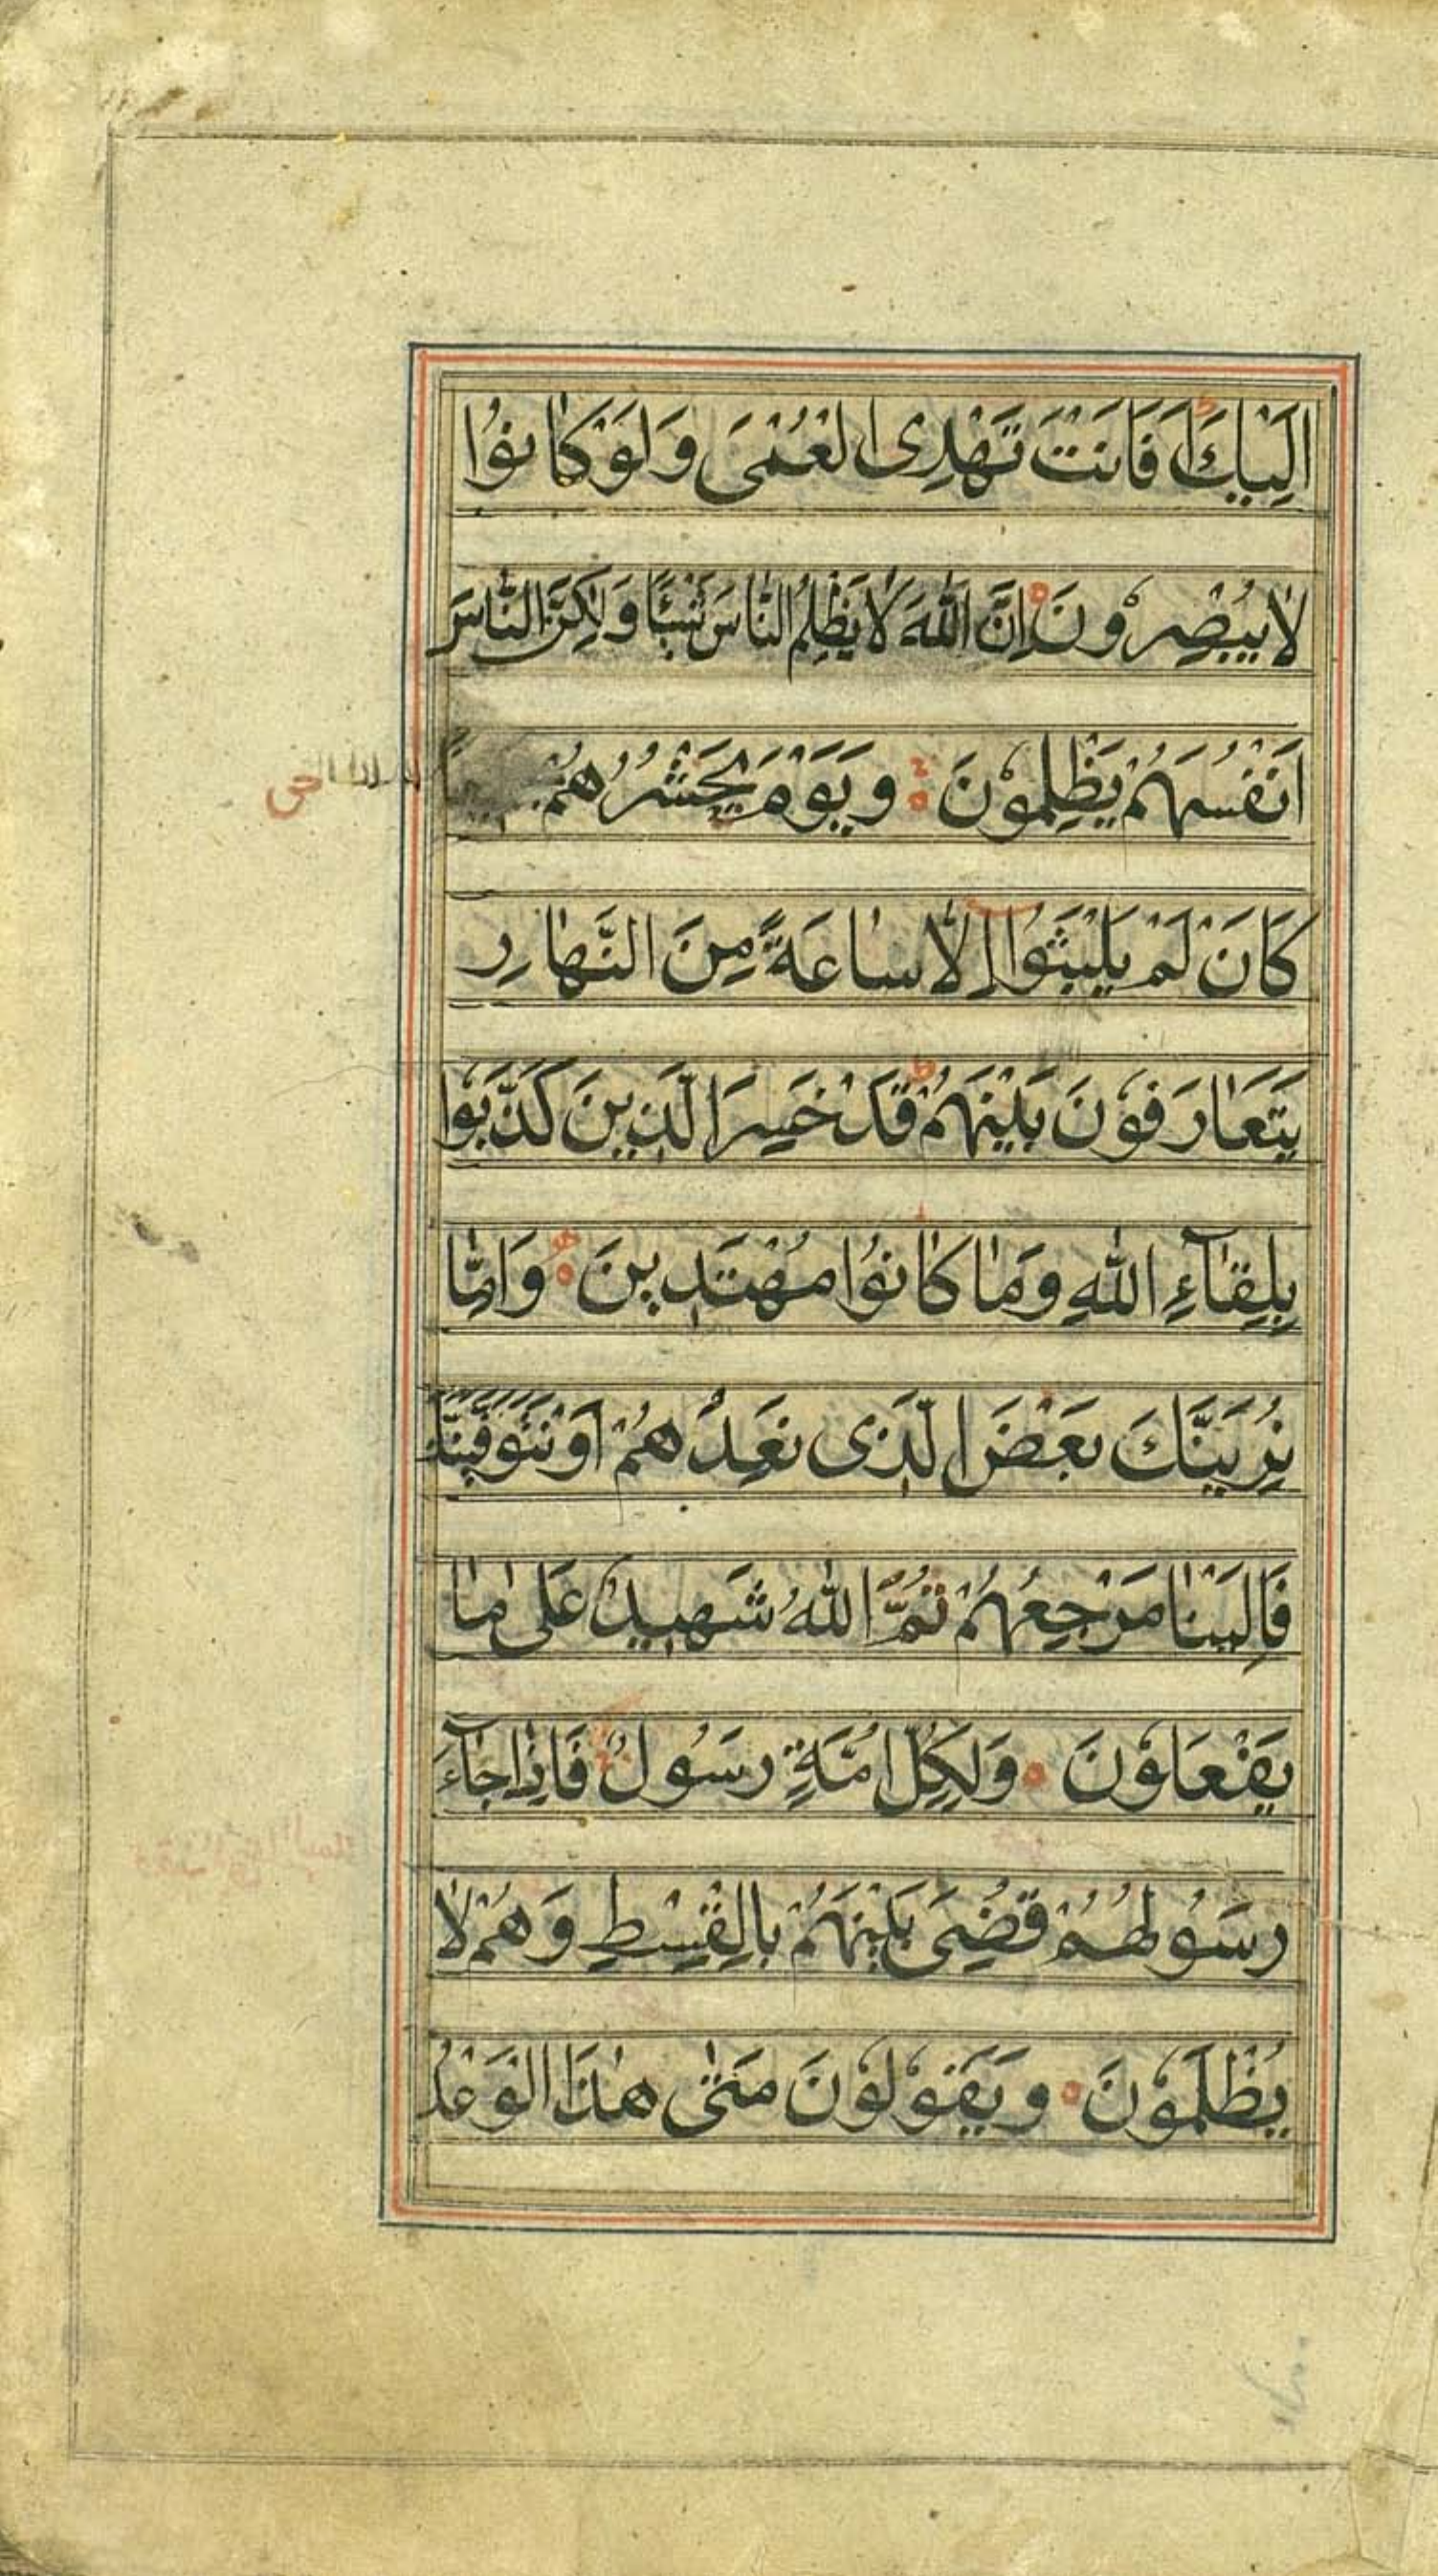 اِلَيْكَ اَفَاَنْتَ تَهْدِى الْعُمْىَ وَلَوْ كَانُوْا
لَا يُبْصِرُوْنَ اِنَّ اللّٰهَ لَا يَظْلِمُ النَّاسَ شَيْئًا وَلٰكِنَّ النَّاسَ
اَنْفُسَهُمْ يَظْلِمُوْنَ وَيَوْمَ يَحْشُرُهُمْ
كَاَنْ لَمْ يَلْبَثُوْا اِلَّا سَاعَةً مِنَ النَّهَارِ
يَتَعَارَفُوْنَ بَيْنَهُمْ قَدْ خَسِرَ الَّذِيْنَ كَذَّبُوْا
بِلِقَآءِ اللّٰهِ وَمَا كَانُوْا مُهْتَدِيْنَ وَاِمَّا
نُرِيَنَّكَ بَعْضَ الَّذِى نَعِدُهُمْ اَوْ نَتَوَفَّيَنَّكَ
فَاِلَيْنَا مَرْجِعُهُمْ ثُمَّ اللّٰهُ شَهِيْدٌ عَلٰى مَا
يَفْعَلُوْنَ وَلِكُلِّ اُمَّةٍ رَسُوْلٌ فَاِذَا جَآءَ
رَسُوْلُهُمْ قُضِىَ بَيْنَهُمْ بِالْقِسْطِ وَهُمْ لَا
يُظْلَمُوْنَ وَيَقُوْلُوْنَ مَتٰى هٰذَا الْوَعْدُ